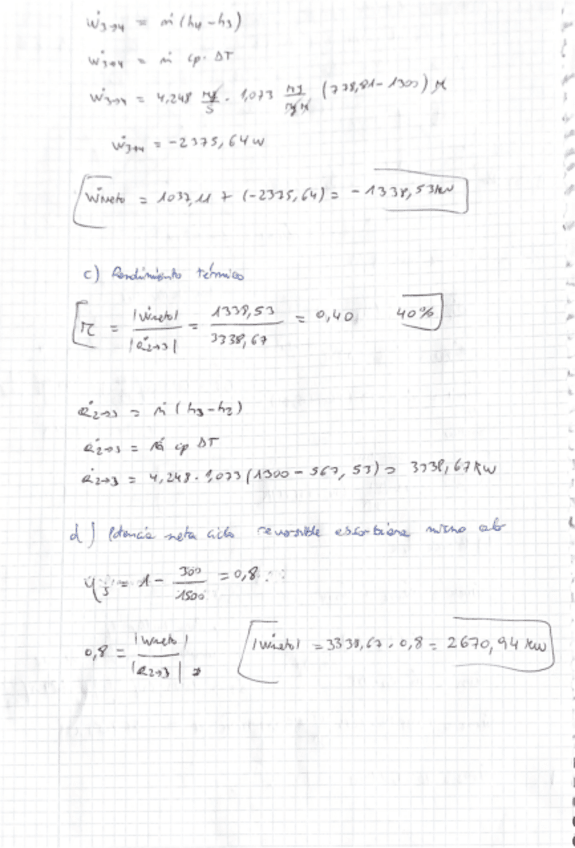 ẇ3→4 = ṁ (h4 - h3)
ẇ3→4 = ṁ cp · ΔT
ẇ3→4 = 4,248 kg/s · 1,073 kJ/kg K (778,81 - 1300) K
ẇ3→4 = -2375,64 W
Ẇneto = 1037,11 + (-2375,64) = -1338,53 kW
c) Rendimiento térmico
η = |Ẇneto| / |Q̇2→3| = 1338,53 / 3338,67 = 0,40 40%
Q̇2→3 = ṁ (h3 - h2)
Q̇2→3 = ṁ cp ΔT
Q̇2→3 = 4,248 · 1,073 (1300 - 567,53) = 3338,67 kW
d) Potencia neta ciclo reversible absorbiera mismo calor
η = 1 - 300 / 1500 = 0,8
0,8 = |Ẇneto| / |Q̇2→3| |Ẇneto| = 3338,67 · 0,8 = 2670,94 kW